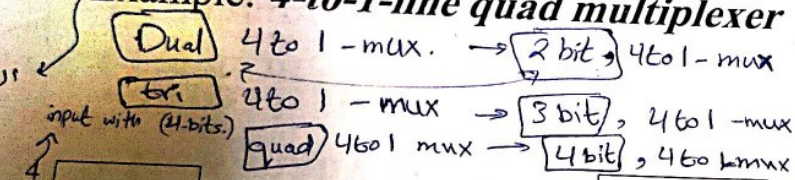 Example: 4-to-1-line quad multiplexer
Dual 4 to 1 - mux. → 2 bit, 4 to 1 - mux
tri 4 to 1 - mux → 3 bit, 4 to 1 - mux
input with (4-bits.)
quad 4 to 1 mux → 4 bit, 4 to 1 mux
4